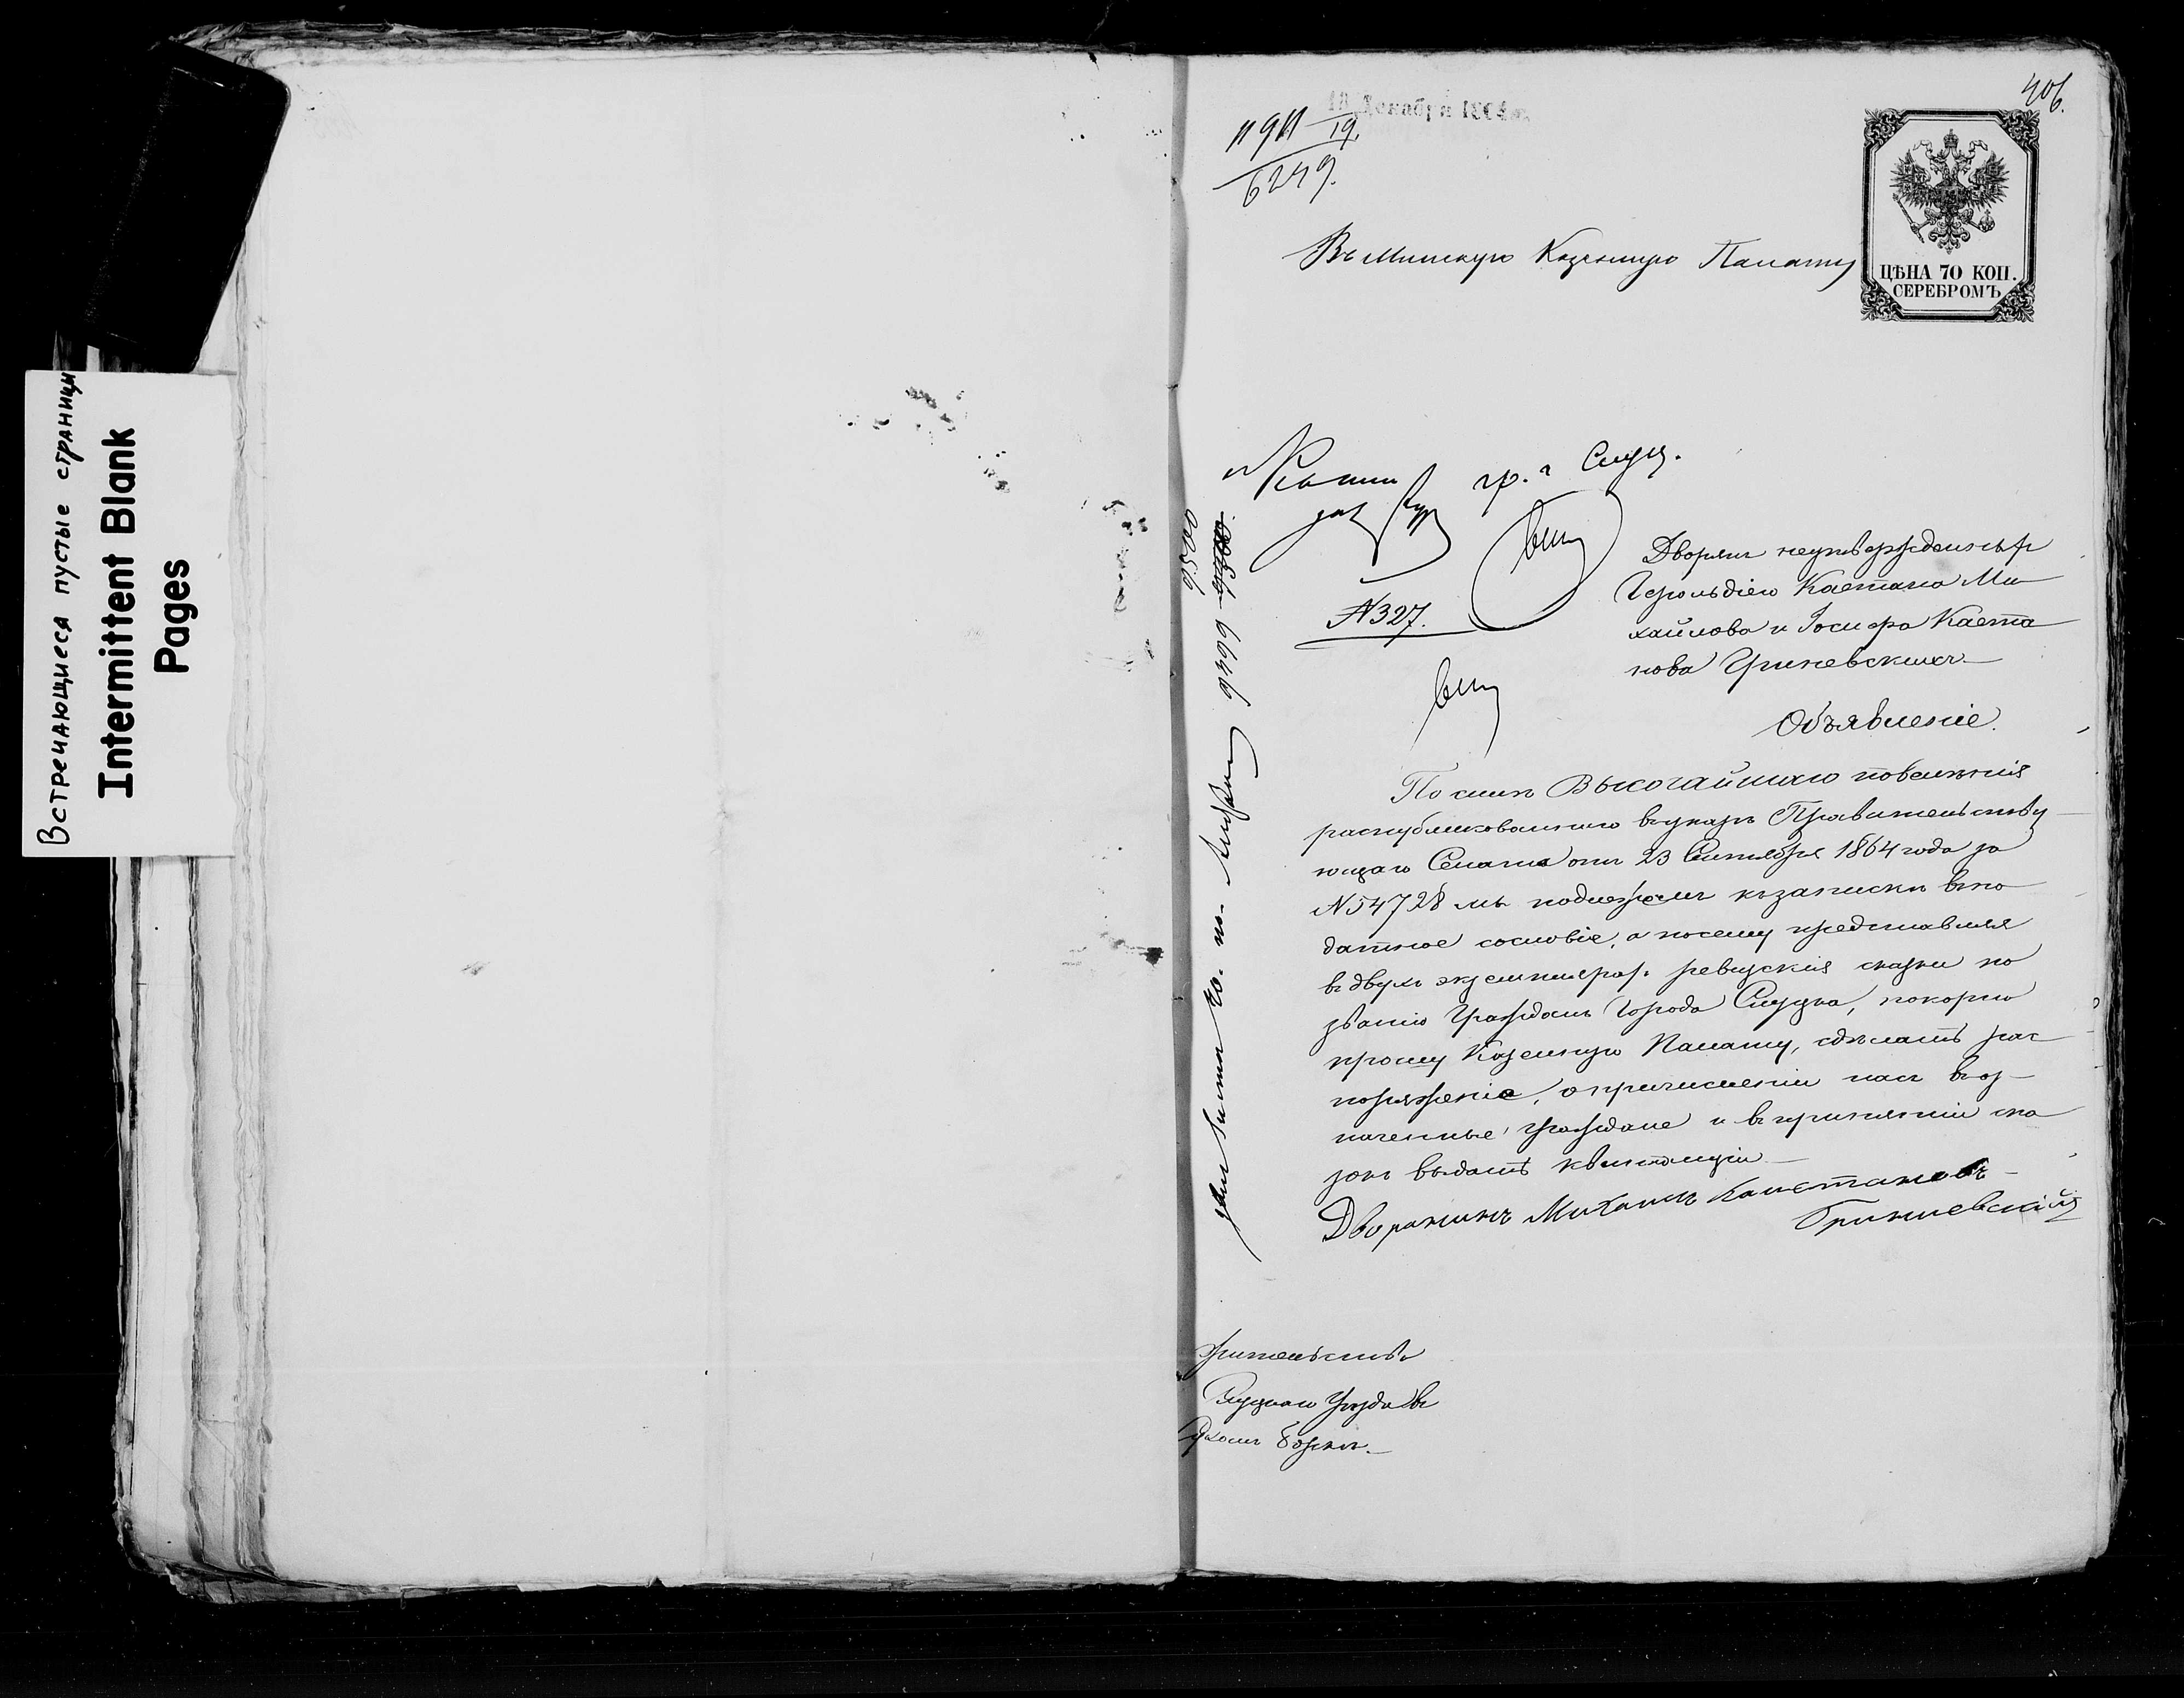 Встречающиеся пустые страницы
Intermittent Blank
Pages
406.
Декабря
19.
6249.
ЦѢНА 70 КОП.
СЕРЕБРОМЪ
Въ Минскую Казенную Палату
гр. г Слуц.
N 327.
9499 9500
Дворянъ неутвержденныхъ
Герольдіею Каетана Ми
хайлова и Іосифа Каета
нова Гриневскихъ
Объявленіе.
По силѣ Высочайшаго повелѣнія
распубликованнаго въ указѣ Правительству
ющаго Сената отъ 23 Сентября 1864 года за
N 54728 мы подлежимъ къ запискѣ въ по
датное сословіе, а посему представляя
въ двухъ экземплярах. ревизскія сказки по
званію Гражданъ Города Слуцка, покорно
прошу Казенную Палату, сдѣлать рас
поряженіе, о причисленіи насъ въ оз
наченные граждане и въ принятіи ска
зокъ выдать квитанціи
Дворянинъ Михаилъ Каетановъ
Гриневскій
Жительство
Слуцкаго Уѣзда въ